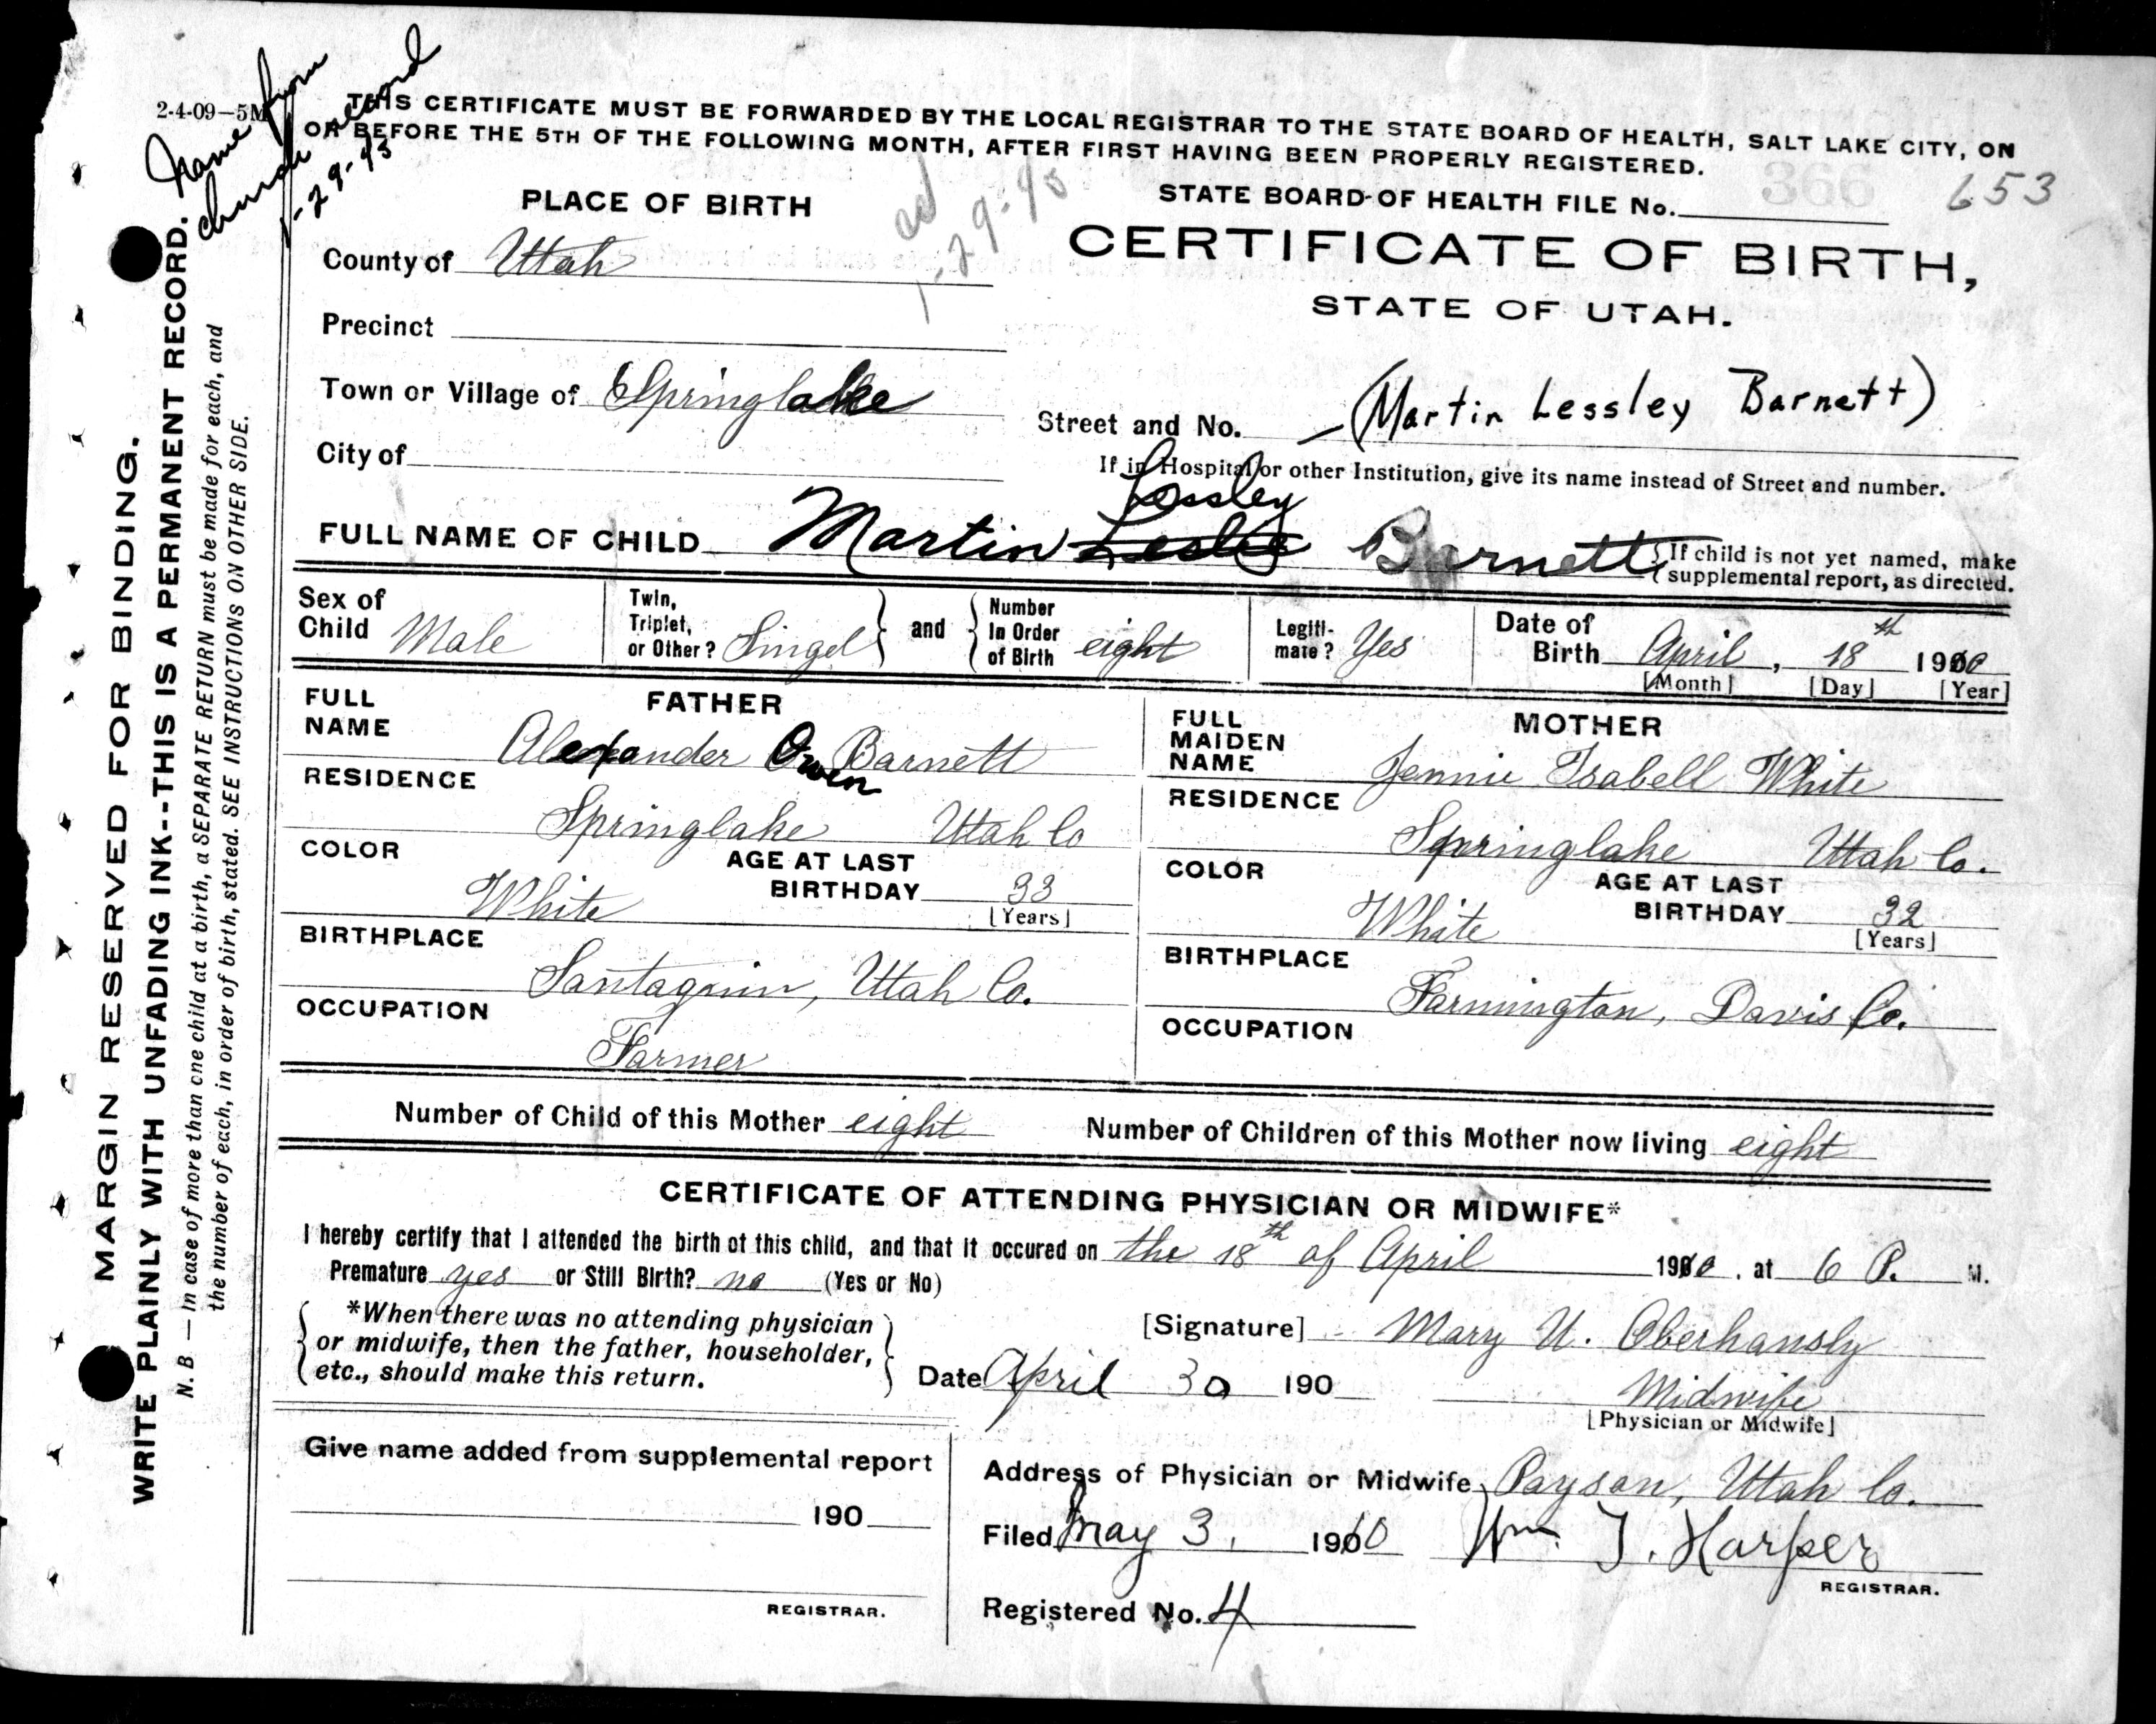 2-4-09-5M
Name from
church record
1-29-43
THIS CERTIFICATE MUST BE FORWARDED BY THE LOCAL REGISTRAR TO THE STATE BOARD OF HEALTH, SALT LAKE CITY, ON
OR BEFORE THE 5TH OF THE FOLLOWING MONTH, AFTER FIRST HAVING BEEN PROPERLY REGISTERED.
1-29-43
STATE BOARD OF HEALTH FILE No. 366 653
PLACE OF BIRTH
CERTIFICATE OF BIRTH,
STATE OF UTAH.
County of Utah
Precinct
Town or Village of Springlake
Street and No. — (Martin Lessley Barnett)
City of
If in Hospital or other Institution, give its name instead of Street and number.
Lessley
FULL NAME OF CHILD Martin Leslie Barnett { If child is not yet named, make
supplemental report, as directed.
Sex of Child Male
Twin, Triplet, or Other? Singel } and { Number In Order of Birth eight
Legitimate? Yes
Date of Birth April, 18th 1910
[Month] [Day] [Year]
FATHER
FULL NAME Alexander Owen Barnett
RESIDENCE
Springlake Utah Co
COLOR White
AGE AT LAST BIRTHDAY 33
[Years]
BIRTHPLACE
Santaquin, Utah Co.
OCCUPATION
Farmer
MOTHER
FULL MAIDEN NAME Jennie Isabell White
RESIDENCE
Springlake Utah Co.
COLOR White
AGE AT LAST BIRTHDAY 32
[Years]
BIRTHPLACE
Farmington, Davis Co.
OCCUPATION
Number of Child of this Mother eight Number of Children of this Mother now living eight
CERTIFICATE OF ATTENDING PHYSICIAN OR MIDWIFE*
I hereby certify that I attended the birth of this child, and that it occured on the 18th of April 1910, at 6 P. M.
Premature yes or Still Birth? no (Yes or No)
*When there was no attending physician
or midwife, then the father, householder,
etc., should make this return.
[Signature] Mary U. Oberhansly
Date April 30 190
Midwife
[Physician or Midwife]
Give name added from supplemental report
190
REGISTRAR.
Address of Physician or Midwife Payson, Utah Co.
Filed May 3, 1910 Wm. T. Harper
REGISTRAR.
Registered No. 4
MARGIN RESERVED FOR BINDING.
WRITE PLAINLY WITH UNFADING INK--THIS IS A PERMANENT RECORD.
N. B — In case of more than one child at a birth, a SEPARATE RETURN must be made for each, and
the number of each, in order of birth, stated. SEE INSTRUCTIONS ON OTHER SIDE.